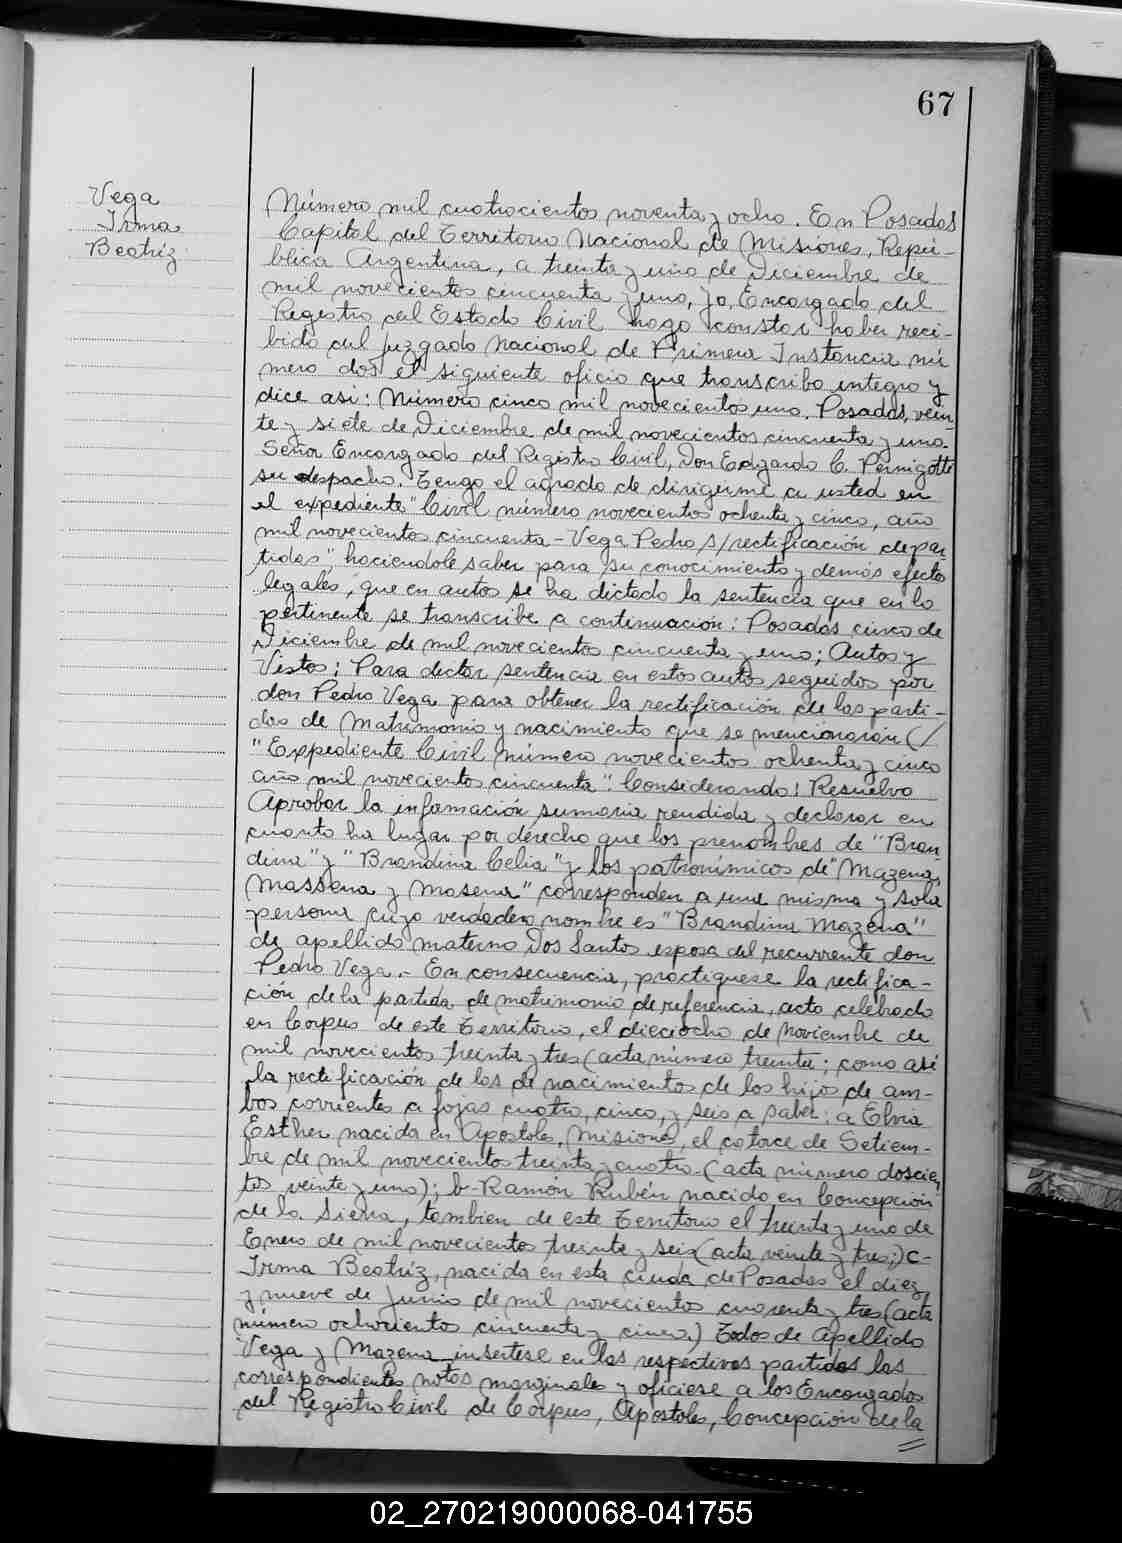 67
Vega
Irma
Beatriz
Número mil cuatrocientos noventa y ocho. En Posadas
Capital del Territorio Nacional de Misiones, Repú-
blica Argentina, a treinta y uno de Diciembre de
mil novecientos cincuenta y uno, yo, Encargado del
Registro del Estado Civil hago constar haber reci-
bido del Juzgado Nacional de Primera Instancia nú
mero dos el siguiente oficio que transcribo integro y
dice asi: Número cinco mil novecientos uno. Posadas, vein-
te y siete de Diciembre de mil novecientos cincuenta y uno.
Señor Encargado del Registro Civil, Don Edgardo C. Pernigotti
su despacho. Tengo el agrado de dirigirme a usted en
el expediente "Civil número novecientos ochenta y cinco, año
mil novecientos cincuenta - Vega Pedro s/rectificación de par
tidas", haciendole saber para su conocimiento y demás efectos
legales, que en autos se ha dictado la sentencia que en lo
pertinente se transcribe a continuación: Posadas cinco de
Diciembre de mil novecientos cincuenta y uno; Autos y
Vistos: Para dictar sentencia en estos autos seguidos por
don Pedro Vega para obtener la rectificación de las parti-
das de Matrimonio y nacimiento que se mencionarán (/
"Expediente Civil número novecientos ochenta y cinco
año mil novecientos cincuenta". Considerando: Resuelvo
Aprobar la información sumaria rendida y declarar en
cuanto ha lugar por derecho que los prenombres de "Bran-
dina" y "Brandina Celia" y los patronímicos de "Mazena,
Massena y Masena" corresponden a una misma y sola
persona cuyo verdadero nombre es "Brandina Mazena"
de apellido materno Dos Santos esposa del recurrente don
Pedro Vega.- En consecuencia, practiquese la rectifica-
ción de la partida de matrimonio de referencia, acto celebrado
en Corpus de este Territorio, el dieciocho de Noviembre de
mil novecientos treinta y tres (acta número treinta; como asi
la rectificación de las de nacimientos de los hijos de am-
bos corrientes a fojas cuatro, cinco, y seis a saber: a Elvia
Esther nacida en Apostoles, Misiones, el catorce de Setiem-
bre de mil novecientos treinta y cuatro (acta número doscien
tos veinte y uno); b- Ramón Rubén nacido en Concepción
de la Sierra, tambien de este Territorio el treinta y uno de
Enero de mil novecientos treinta y seis (acta veinte y tres;) C-
Irma Beatríz, nacida en esta ciuda de Posadas el diez
y nueve de Junio de mil novecientos cuarenta y tres (acta
número ochocientos cincuenta y cinco.) Todos de apellido
Vega y Mazena insertese en las respectivas partidas las
correspondientes notas marginales y oficiese a los Encargados
del Registro Civil de Corpus, Apostoles, Concepción de la
02_270219000068-041755